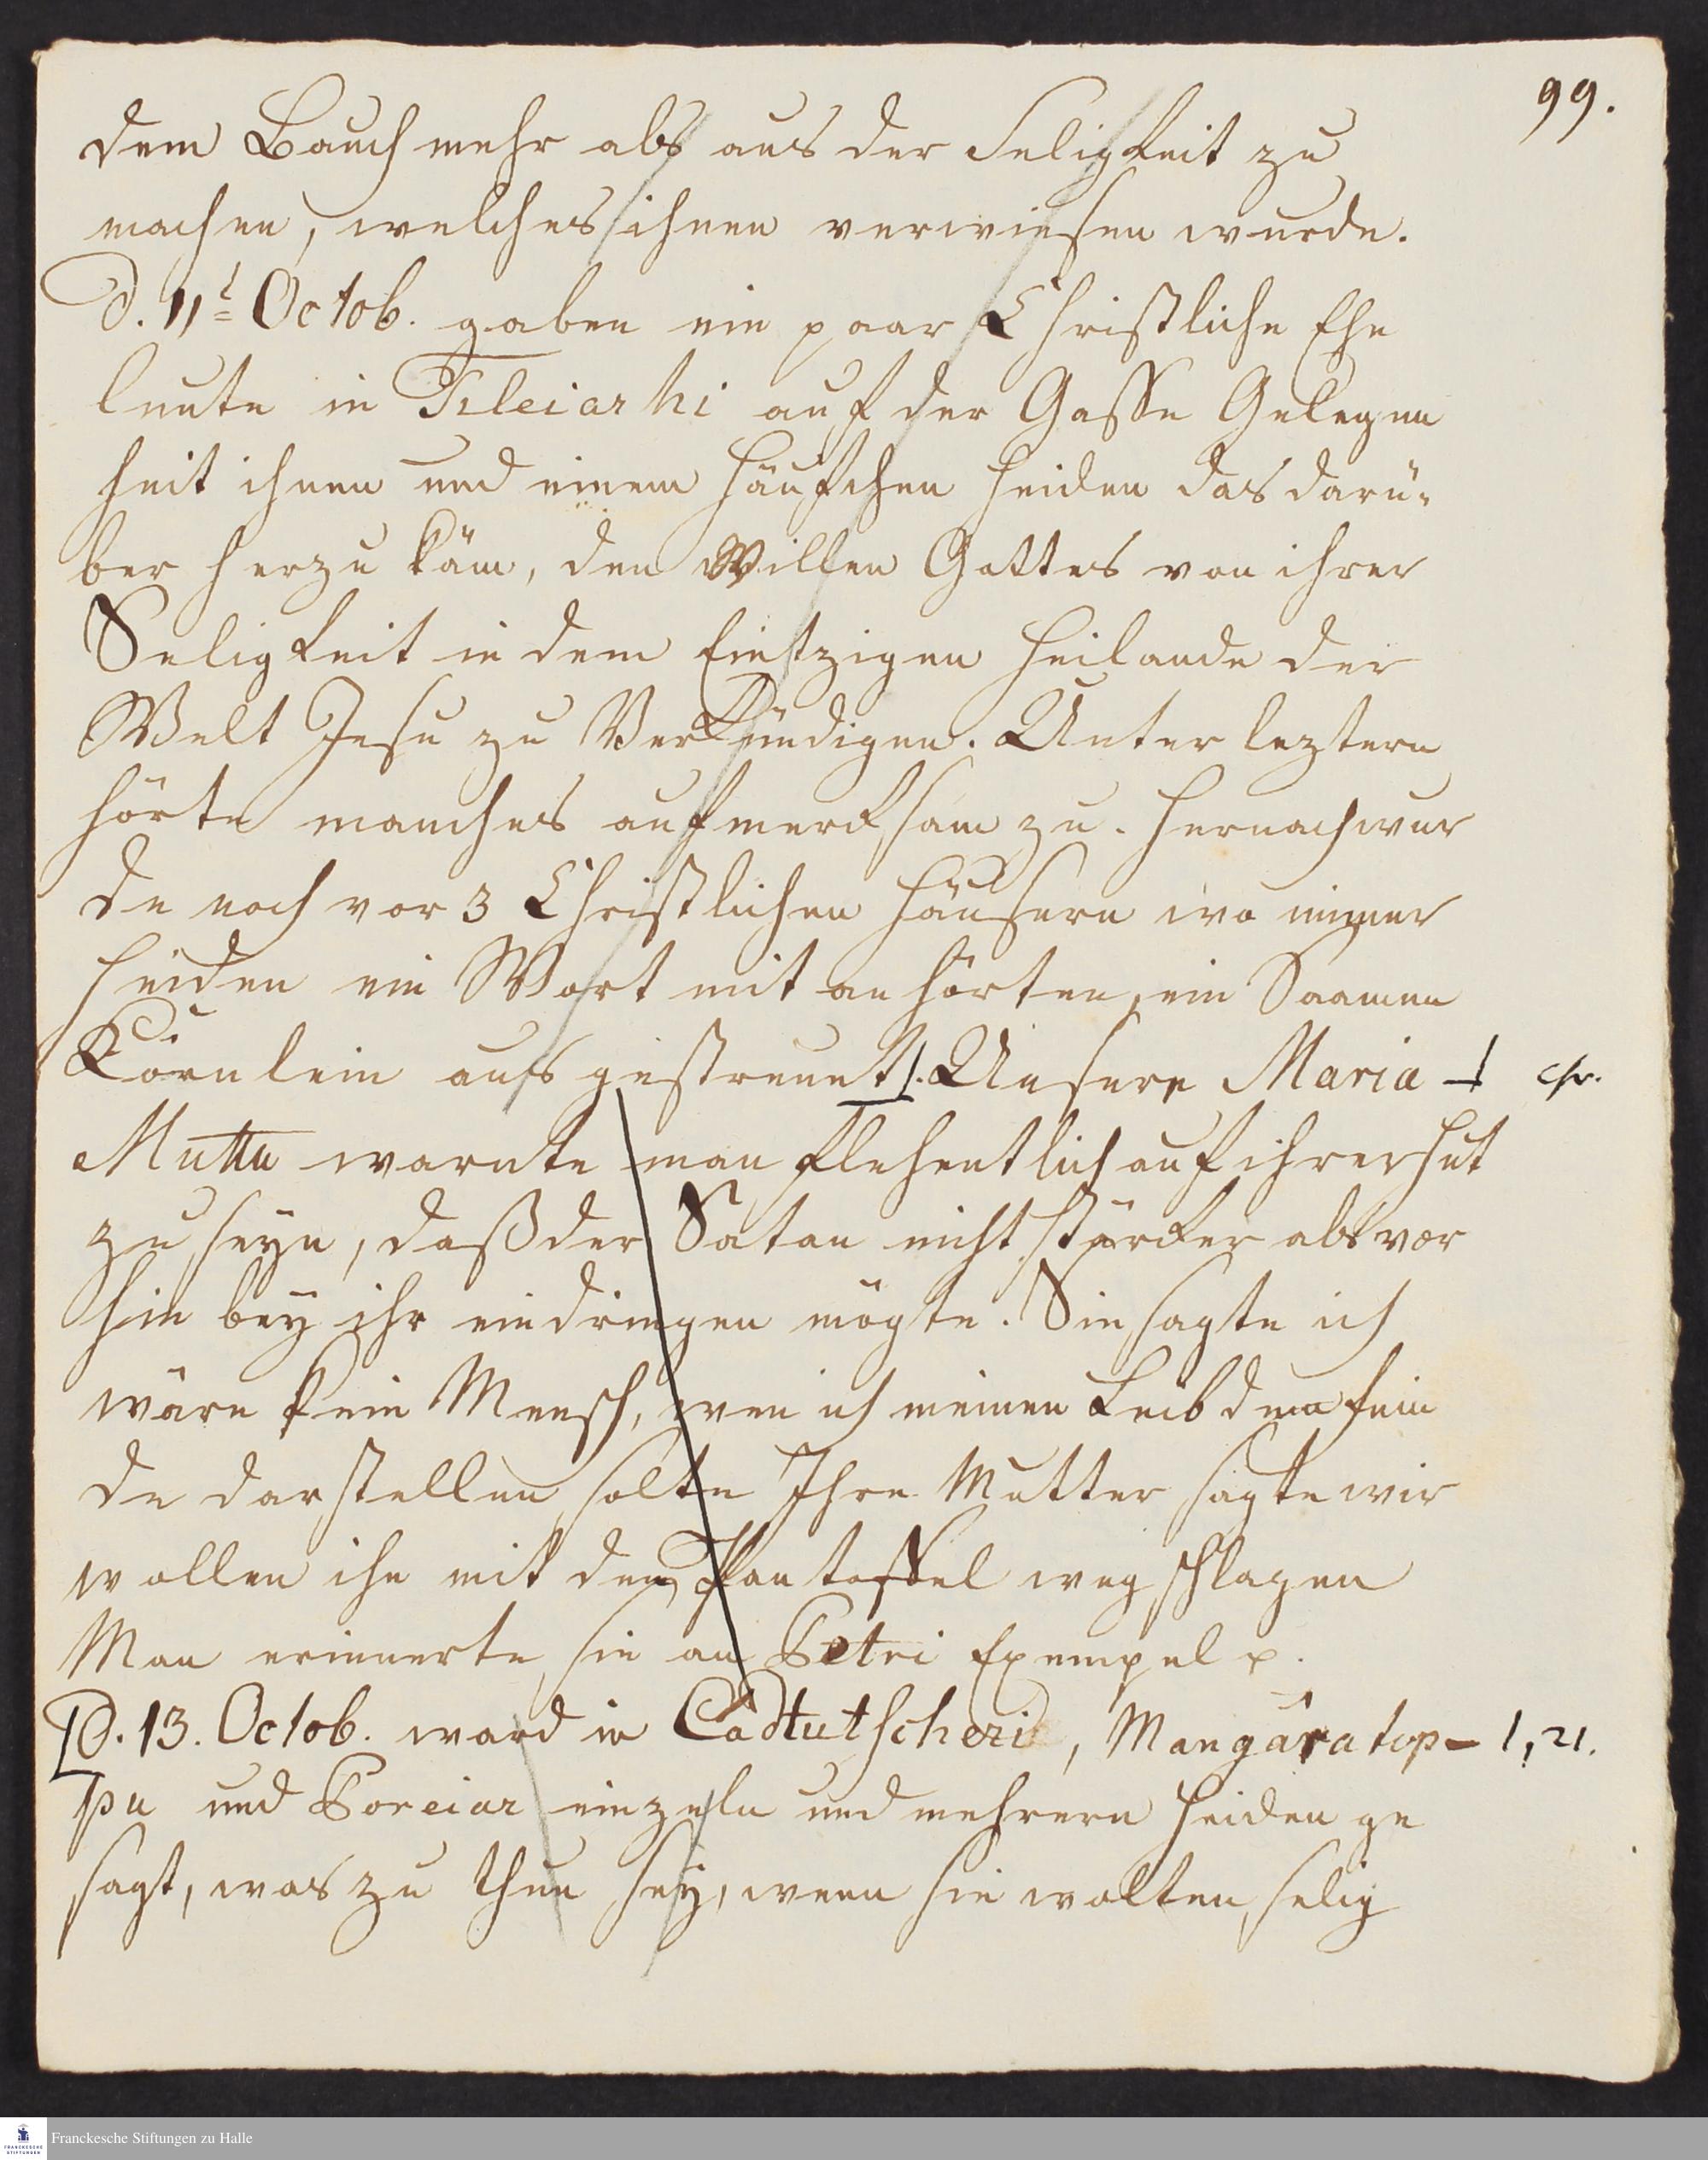 99.
dem Bauch mehr als aus der Seligkeit zu
machen, welches ihnen verwiesen wurde.
D. 11t Octob. gaben ein paar Christliche Ehe
leute in Tileiarhi auf der Gasse Gelegen
heit ihnen und einem Häufchen Heiden das darü-
ber herzu käm, den Willen Gottes von ihrer
Seligkeit in dem Eintzigen Heilande der
Welt Jesu zu Verkündigen. Unter leztern
hörte manches aufmercksam zu. Hernach wur
de noch vor 3 Christlichen Häusern wo immer
Heiden ein Wort mit anhörten, ein Saamen
Körnlein ausgestreuet. Unsere Maria
Muttu warnte man flehentlich auf ihrer Hut
zu seyn, daß der Satan nicht stärcker als vor
hin bey ihr eindringen mögte. Sie sagte ich
wäre kein Mensch, wen ich meinen Leib dem Fein
de darstellen solte Ihre Mutter sagte wir
wollen ihn mit dem Pantoffel wegschlagen
Man erinnerte sie an Petri Exempel p.
D. 13. Octob. ward in Cadtutscheri, Mangáratop- 1, 21.
pu und Poreiar einzeln und mehrern Heiden ge
sagt, was zu thun sey, wenn sie wolten selig
Franckesche Stiftungen zu Halle